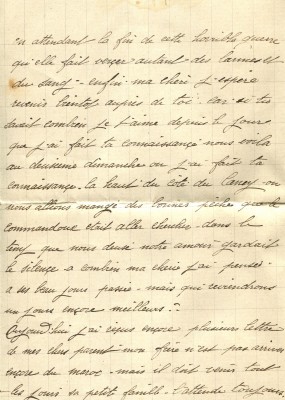 en attendant la fin de cette horrible guerre
qu'elle fait verser autant des larmes et
du sang - enfin ma cheri j'espère
revenir bientot aupres de toi - car si tu
savait combien je t'aime depuis le jours
que j'ai fait ta connaissance nous voila
au deuxieme dimanche ou j'ai fait ta
connaissance - la haut du côté du on
nous allions mangé des bonnes pêche que le
commandant etait aller chercher - dans le
temp que nous deux notre amour gardait
le silence a combien ma cherie j'ai penser
a ses beau jours passés - mais que reviendrons
un jours encore meilleurs ?
Aujourd'hui j'ai reçus encore plusieurs lettre
de mes chers parent mon frère n'est pas arriver
encore du maroc - mais il doit venir tout
les jours sa petit famille - l'attende toujours